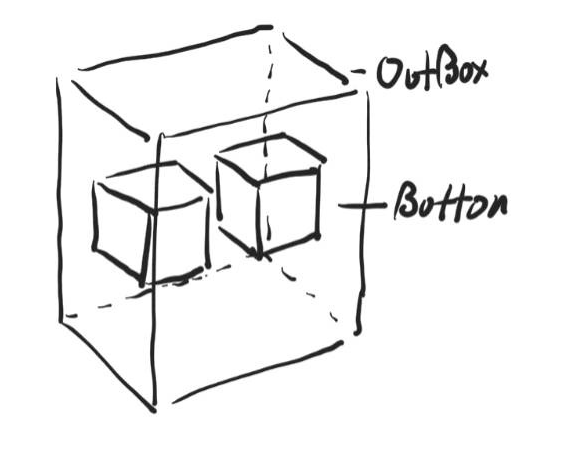 OutBox
Button